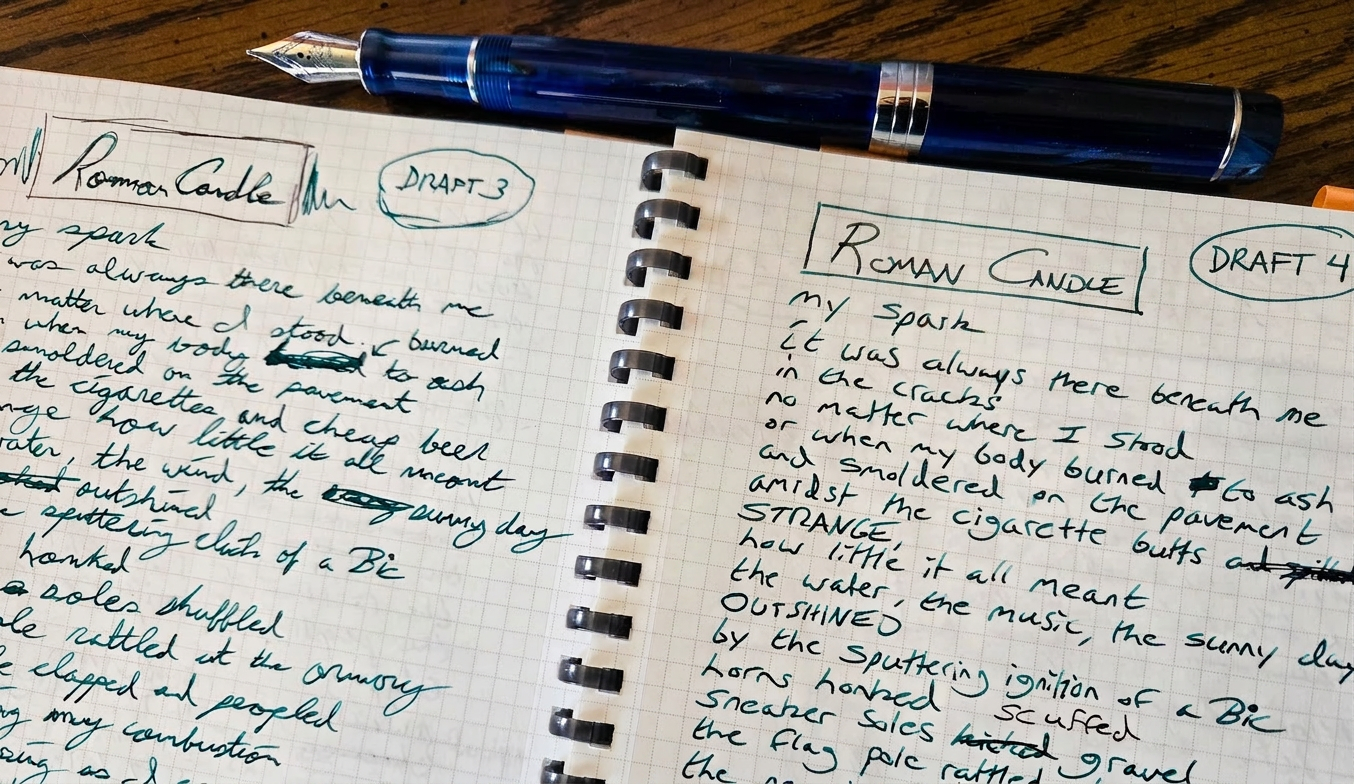 Roman Candle
DRAFT 3
my spark
was always there beneath me
matter where I stood
when my body burned to ash
smoldered on the pavement
the cigarettes and cheap beer
how little it all meant
the wind, the sunny day
outshined
sputtering click of a Bic
honked
soles shuffled
rattled at the armory
clapped and peopled
my combustion
as I
ROMAN CANDLE
DRAFT 4
my spark
it was always there beneath me
in the cracks
no matter where I stood
or when my body burned to ash
and smoldered on the pavement
amidst the cigarette butts
STRANGE,
how little it all meant
the water, the music, the sunny day
OUTSHINED
by the sputtering ignition of a Bic
horns honked
sneaker soles kicked scuffed gravel
the flag pole rattled
the